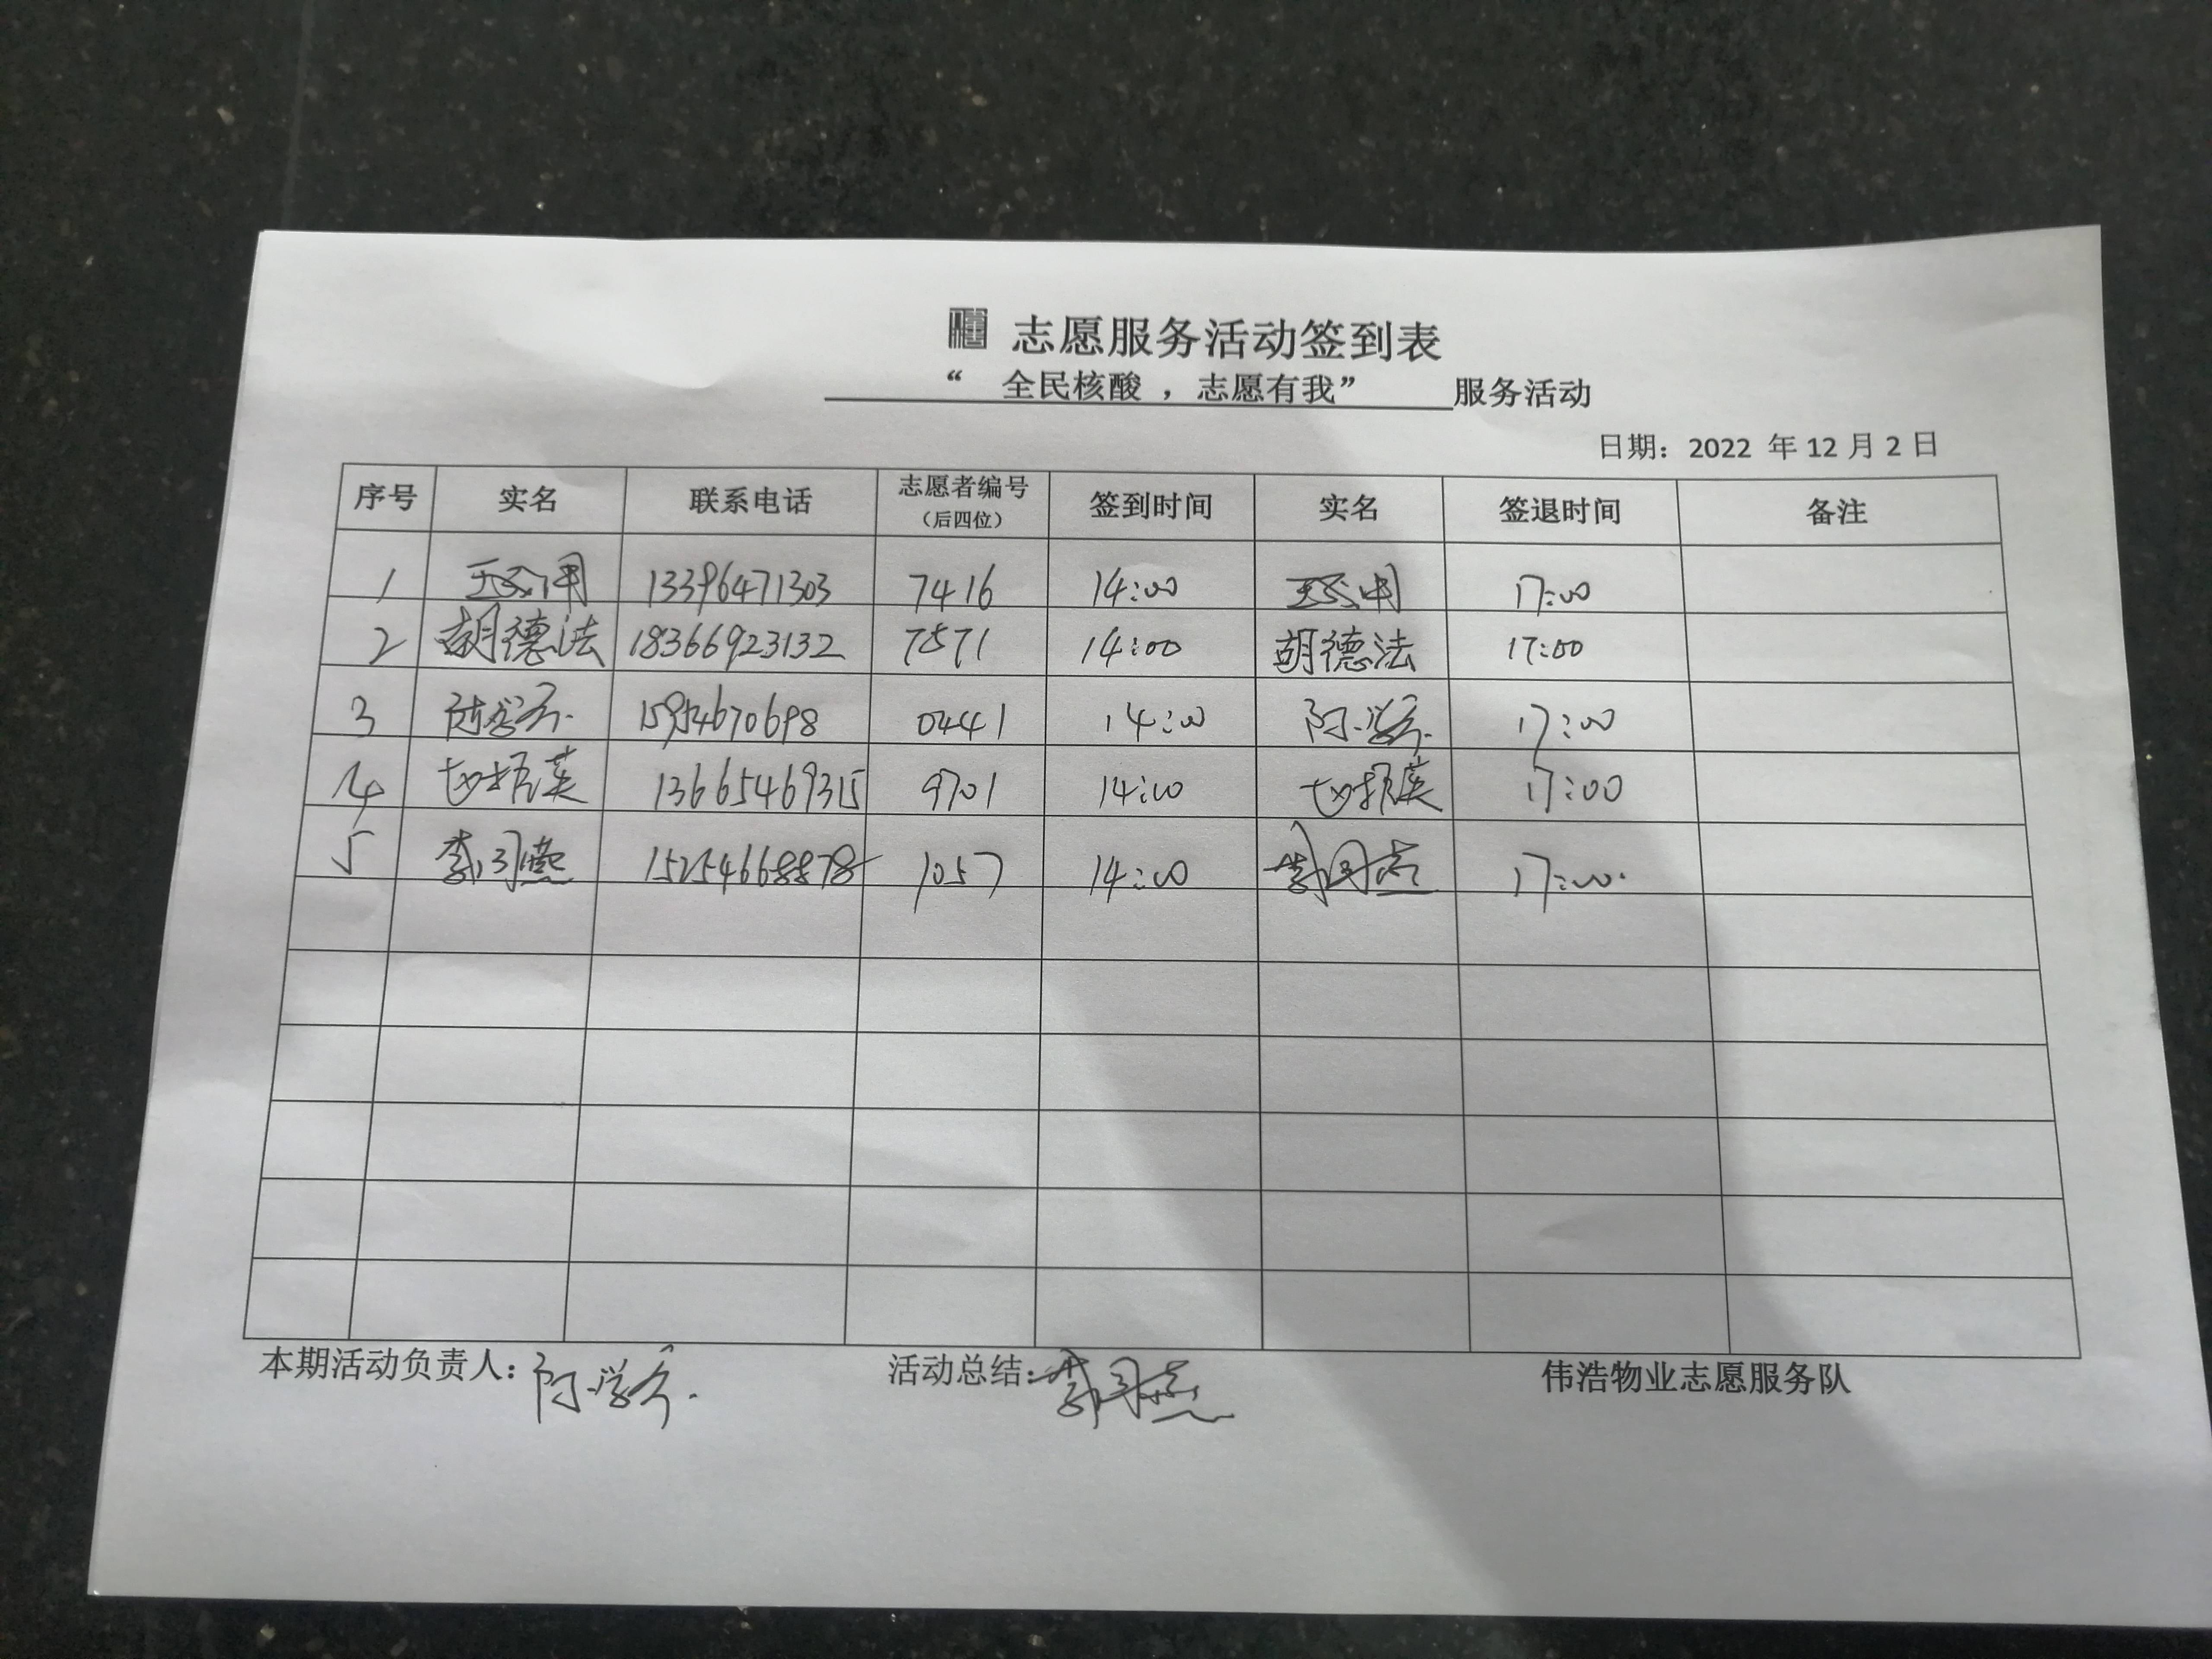 志愿服务活动签到表
“ 全民核酸 ，志愿有我” 服务活动
日期：2022 年 12 月 2 日
序号 实名 联系电话 志愿者编号（后四位） 签到时间 实名 签退时间 备注
1 13396471303 7416 14:00 17:00
2 胡德法 18366923132 7571 14:00 胡德法 17:00
3 0441 14:00 17:00
4 13665469315 9701 14:00 17:00
5 1057 14:00 17:00
本期活动负责人： 活动总结： 伟浩物业志愿服务队